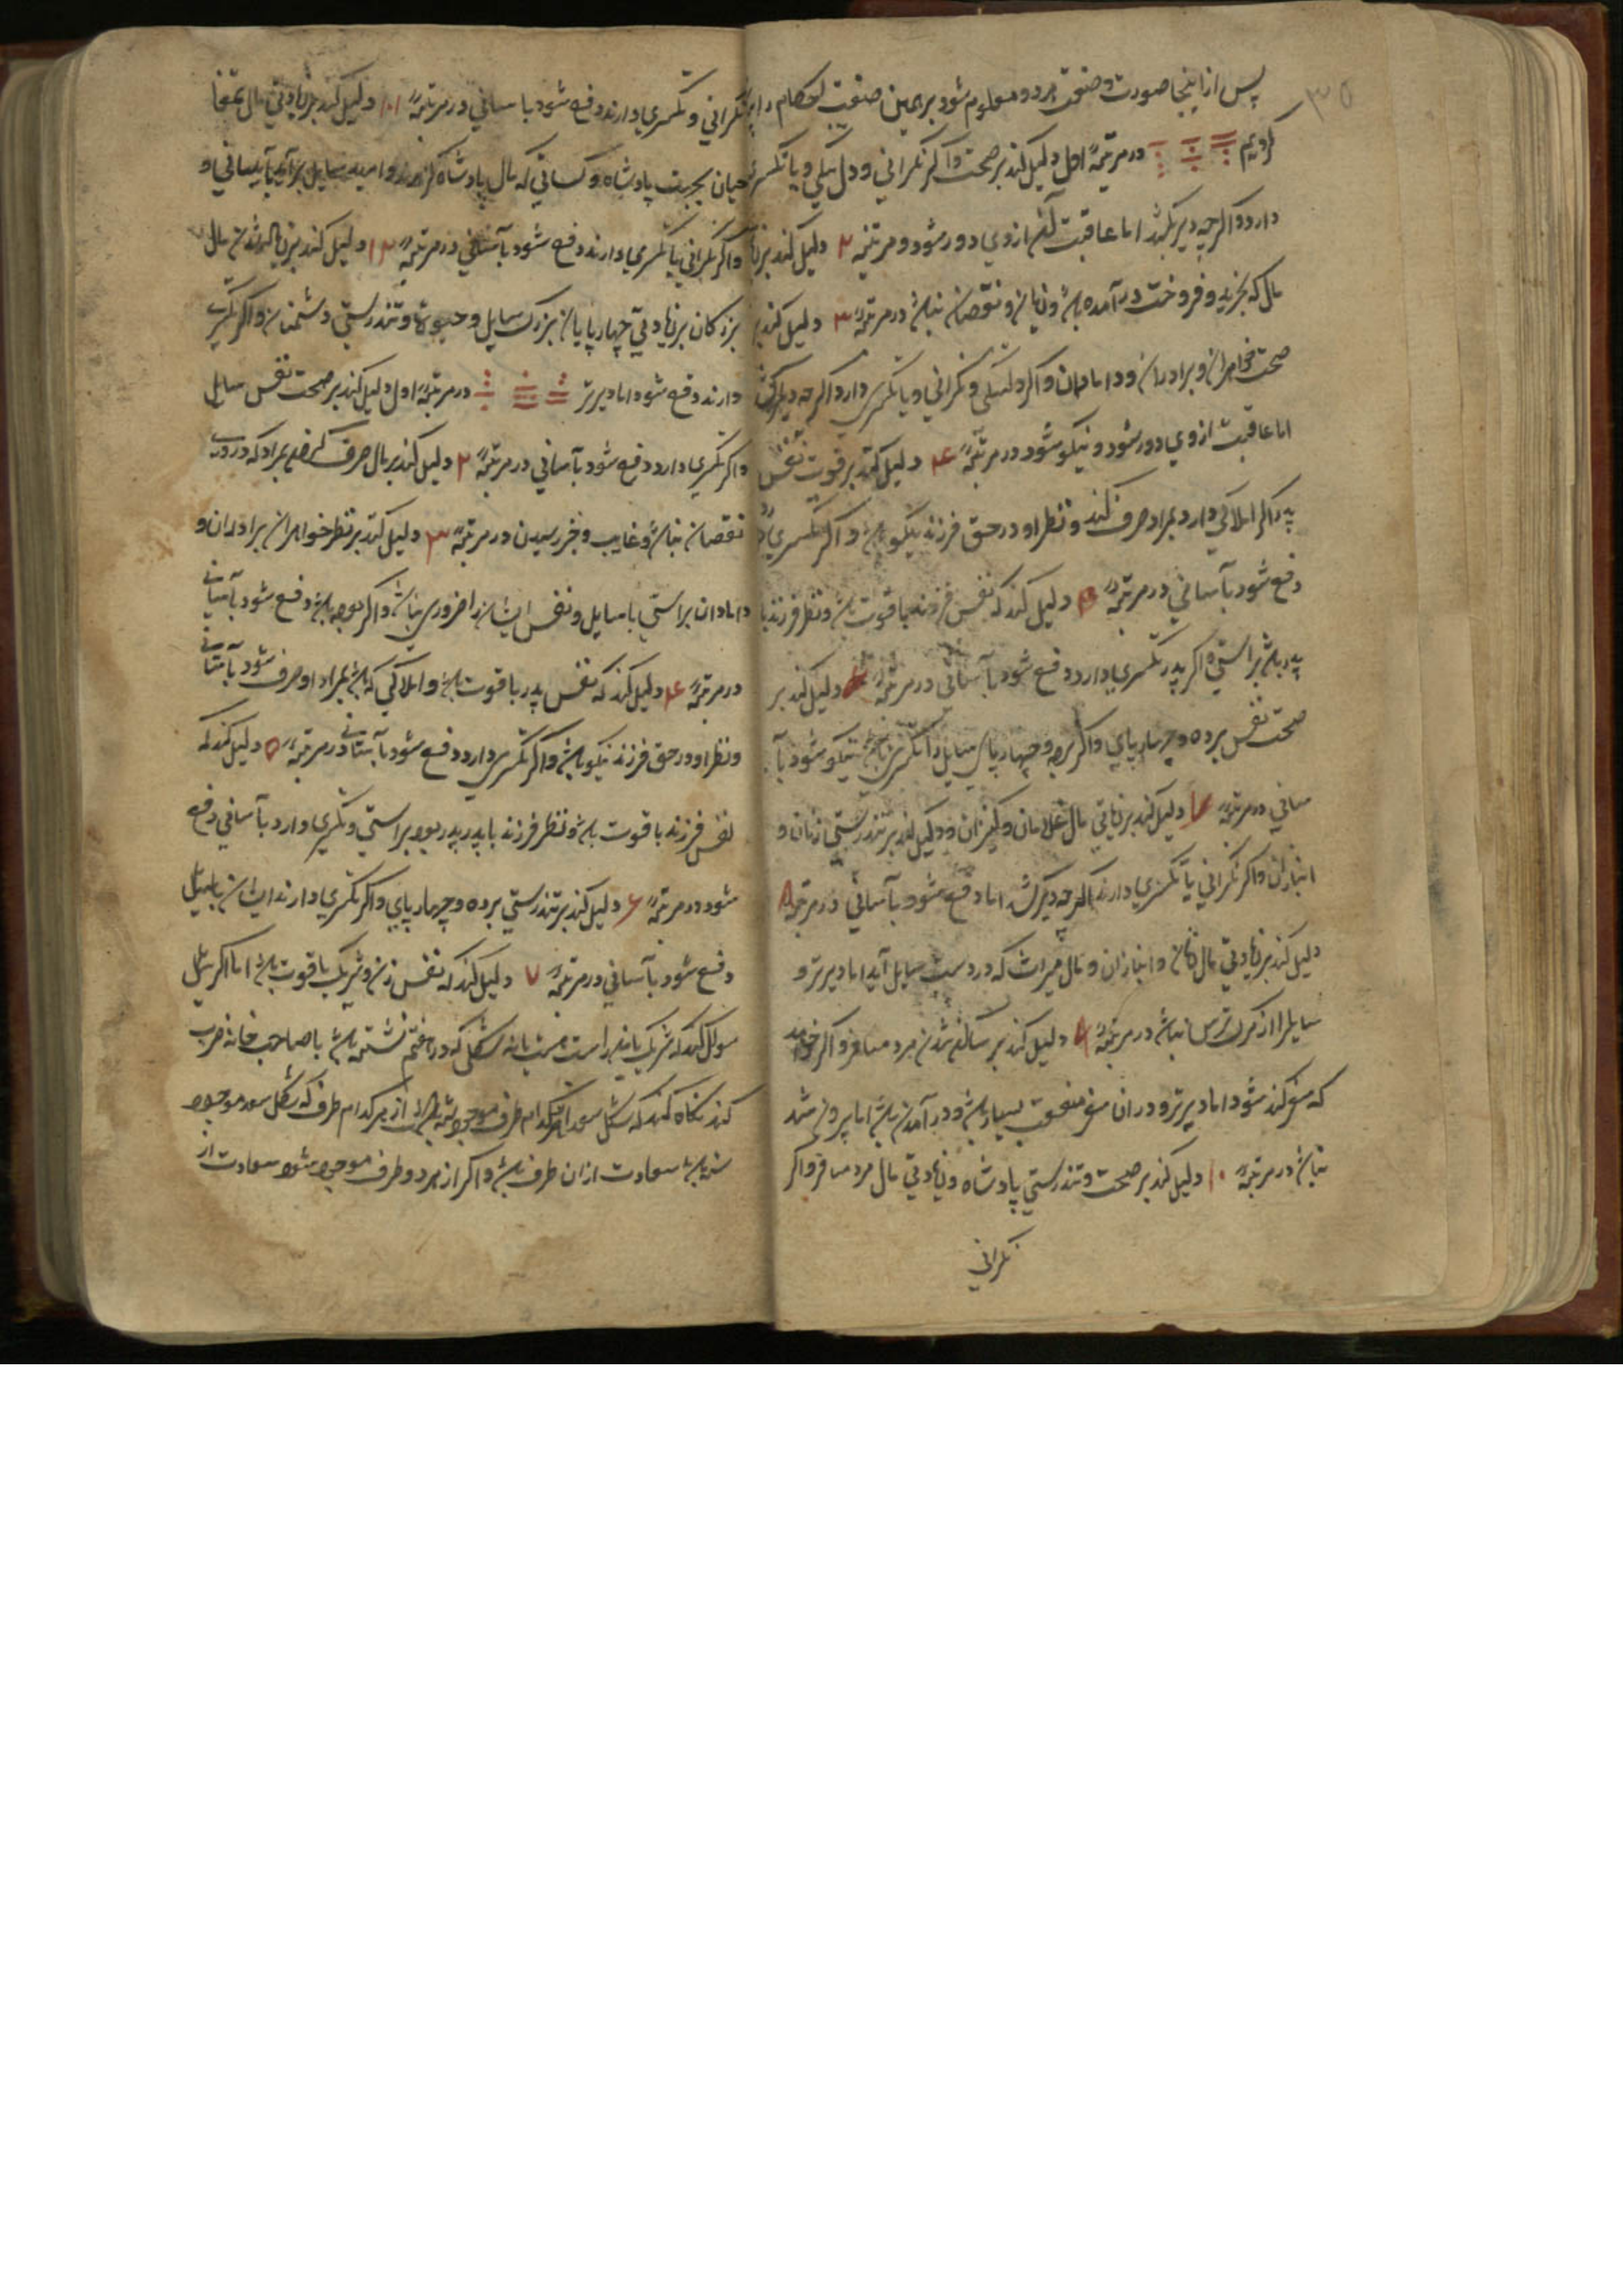 ۳۵
پس از اینجا صورت و صنعت هر دو معلوم شود بر همین صنعت احکام را
کردیم در مرتبهٔ اول دلیل کند بر صحت و اگر نکرانی و دل تنکی و یا تکسری
دارد و اکرچه دیر بکشد اما عاقبت از وی دور شود و مرتبه ۲ دلیل کند بر
مال که بخرید و فروخت در آمده باشد و زیان و نقصان نباشد در مرتبهٔ ۳ دلیل کند بر
صحت خواهران و برادران و دامادان و اکر دلتنکی و نکرانی و یا تکسری دارد اکرچه دیر کشد
اما عاقبت از وی دور شود و نیکو شود در مرتبهٔ ۴ دلیل کند بر قوت نفس
پدر اکر املاکی دارد بمراد صرف کند و نظر او در حق فرزند نیکو باشد و اکر تکسری
دفع شود بآسانی در مرتبهٔ ۵ دلیل کند که نفس فرزند با قوت باشد و نظر فرزند با
پدر باشد براستی و اکر پدر تکسری دارد دفع شود بآسانی در مرتبهٔ ۶ دلیل کند بر
صحت نفس برده و چهارپای و اکر برده و چهارپای سایل را تکسری باشد نیکو شود بآ
سانی در مرتبهٔ ۷ دلیل کند بر زیادتی مال غلامان و کنیزان و دلیل کند بر تندرستی زنان و
انبازان و اکر نکرانی یا تکسری دارند اکرچه دیر کشد اما دفع شود بآسانی در مرتبهٔ ۸
دلیل کند بر زیادتی مال زنان و انبازان و مال میراث که در دست سایل آید اما دیرتر و
سایل را از مرک ترس نباشد در مرتبهٔ ۹ دلیل کند بر ساکن شدن مرد مسافر و اکر خواهد
که سفر کند شود اما دیرتر و در ان سفر منفعت بسیار باشد و در آمدن باشد اما بیرون شد
نباشد در مرتبهٔ ۱۰ دلیل کند بر صحت و تندرستی پادشاه و زیادتی مال مرد مسافر و اکر
نکرانی
نکرانی و تکسری دارند دفع شود باسانی در مرتبهٔ ۱۱ دلیل کند بر زیادتی مال
بجهت پادشاه و کسانی که مال پادشاه و امید سایل برآید بآسانی و
و اکر نکرانی یا تکسری دارند دفع شود بآسانی در مرتبهٔ ۱۲ دلیل کند بر مال
بزرکان بر زیادتی چهارپایان بزرک سایل و حیوة و تندرستی دشمنان و اکر تکسری
دارند دفع شود اما دیرتر در مرتبهٔ اول دلیل کند بر صحت نفس سایل
و اکر تکسری دارد دفع شود بآسانی در مرتبهٔ ۲ دلیل کند بر مال صرف بمراد که در وی
نقصان نباشد و غایب و خبر رسیدن در مرتبهٔ ۳ دلیل کند بر نظر خواهران برادران و
دامادان براستی با سایل و نفس ایشان را ضروری نباشد و اکر بود دفع شود بآسانی
در مرتبهٔ ۴ دلیل کند که نفس پدر با قوت باشد و املاکی که باشد بمراد او صرف شود بآسانی
و نظر او در حق فرزند نیکو باشد و اکر تکسری دارد دفع شود بآسانی در مرتبهٔ ۵ دلیل کند که
نفس فرزند با قوت باشد و نظر فرزند با پدر بود براستی و تکسری دارد بآسانی دفع
شود در مرتبهٔ ۶ دلیل کند بر تندرستی برده و چهارپای و اکر تکسری دارند ایشان یا سایل
دفع شود بآسانی در مرتبهٔ ۷ دلیل کند که نفس زن و شریک با قوت باشد اما اکر سایل
سوال کند که شریک با من راست هست یا نه شکلی که در هفتم نشسته باشد با صاحب خانه ضرب
کند نکاه کند که شکل سعد کدام طرف موجود شده باشد از هر کدام طرف که شکل سعد موجود
شده باشد سعادت از ان طرف باشد و اکر از هر دو طرف موجود شود سعادت از